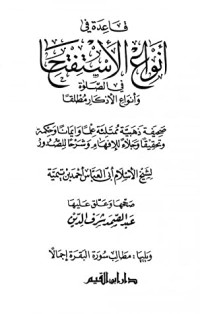 قاعدة في
أنواع الاستفتاح
في الصلاة
وأنواع الأذكار مطلقا
صحيفة ذهبية ممتلئة علما وإيمانا وحكمة
وتحقيقا وجلاء للأفهام وشرحا للصدور
لشيخ الإسلام أبي العباس أحمد بن تيمية
صححها وعلق عليها
عبد الصمد شرف الدين
ويليها: مطالب سورة البقرة إجمالا
دار ابن القيم